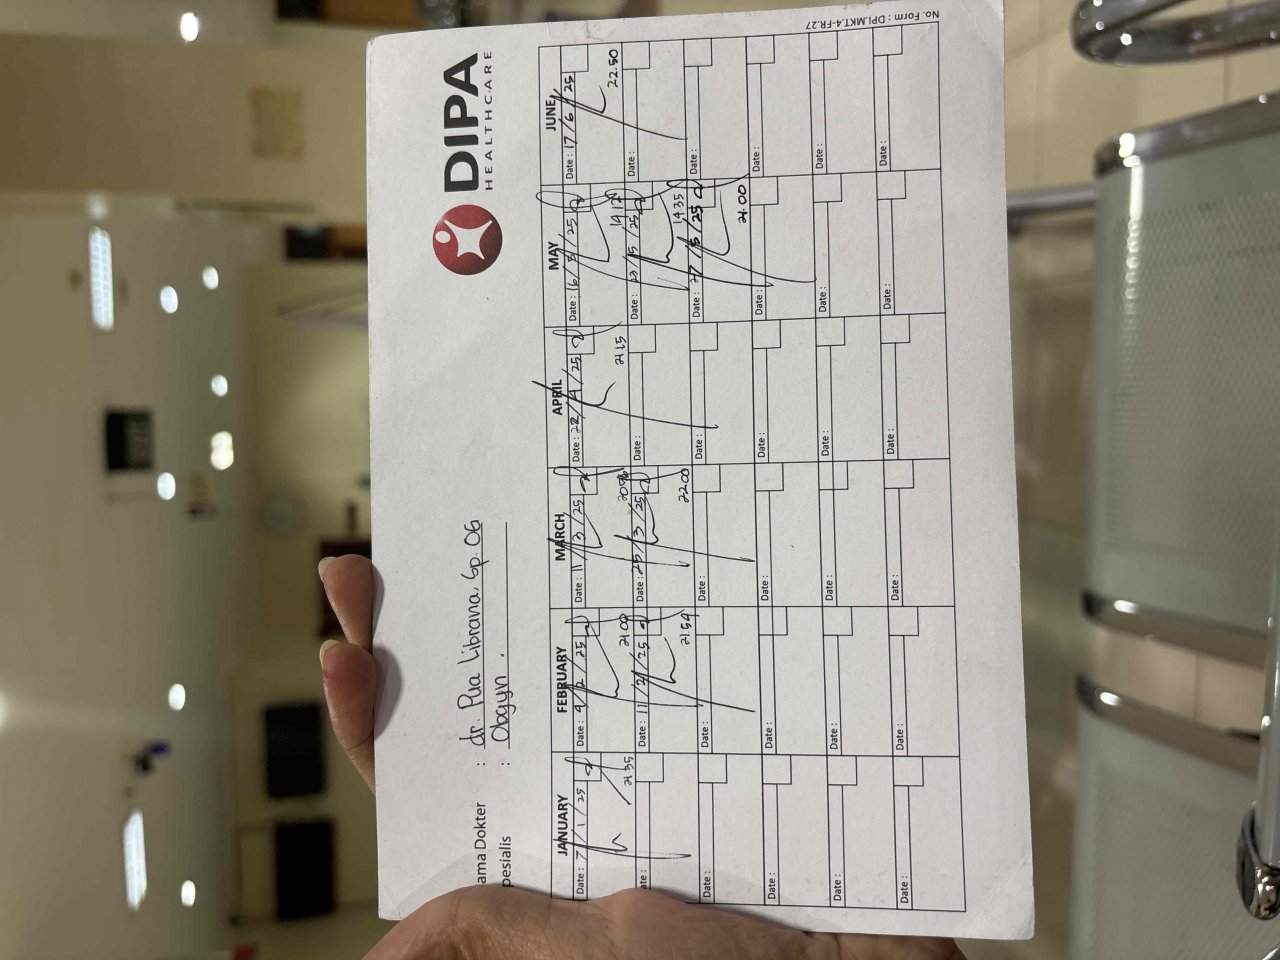 DIPA
HEALTHCARE
ama Dokter : dr. Pua Librana, Sp.OG
pesialis : Obgyn.
JANUARY FEBRUARY MARCH APRIL MAY JUNE
Date : 7/1/25 Date : 4/2/25 Date : 11/3/25 Date : 22/4/25 Date : 6/5/25 Date : 17/6/25
21.35 21.00 20.56 21.15 19.12 22.50
ate : Date : 11/2/25 Date : 25/3/25 Date : Date : 23/5/25 Date :
21.54 22.00 14.35
Date : Date : Date : Date : Date : 27/5/25 Date :
21.00
Date : Date : Date : Date : Date : Date :
Date : Date : Date : Date : Date : Date :
Date : Date : Date : Date : Date : Date :
No. Form : DPI.MKT.4-FR.27